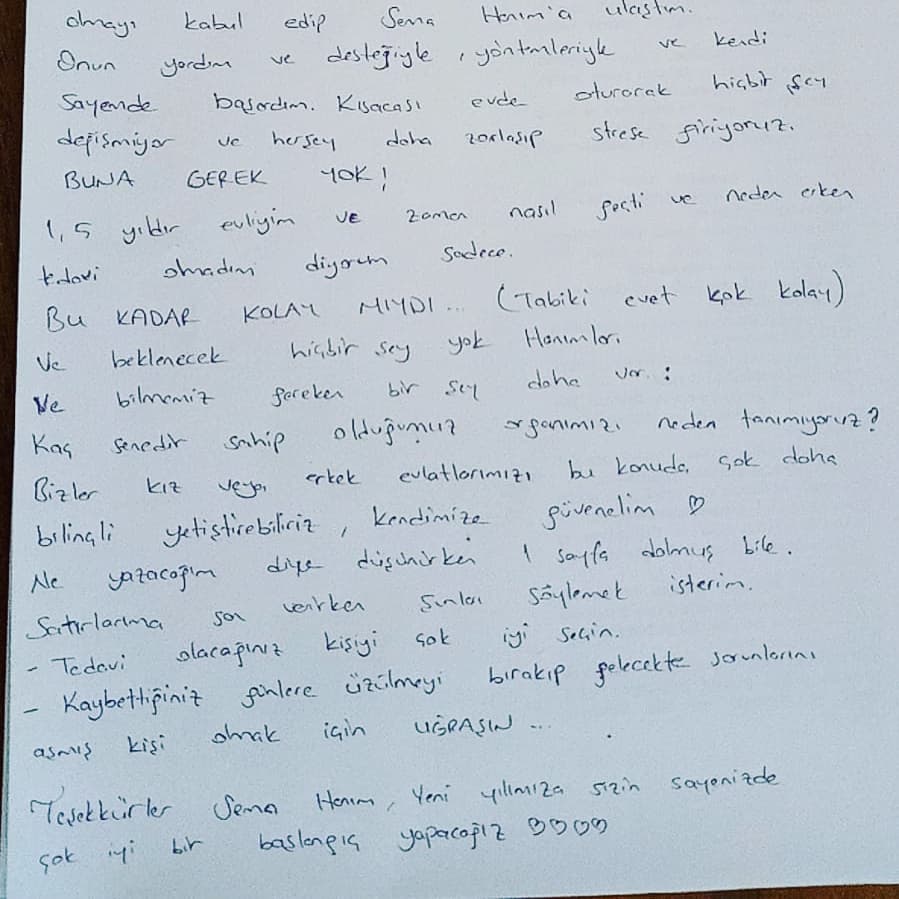 olmayı kabul edip Sema Hanım'a ulaştım.
Onun yardım ve desteğiyle, yöntemleriyle ve kendi
sayemde başardım. Kısacası evde oturarak hiçbir şey
değişmiyor ve herşey daha zorlaşıp strese giriyoruz.
BUNA GEREK YOK!
1,5 yıldır evliyim ve zaman nasıl geçti ve neden erken
tedavi olmadım diyorum sadece.
BU KADAR KOLAY MIYDI... (Tabiki evet çok kolay)
Ve beklenecek hiçbir şey yok Hanımlar.
Ve bilmemiz gereken bir şey daha var:
Kaç senedir sahip olduğumuz organımızı neden tanımıyoruz?
Bizler kız veya erkek evlatlarımızı bu konuda çok daha
bilinçli yetiştirebiliriz, kendimize güvenelim ♡
Ne yazacağım diye düşünürken 1 sayfa dolmuş bile.
Satırlarıma son verirken şunları söylemek isterim.
- Tedavi olacağınız kişiyi çok iyi seçin.
- Kaybettiğiniz günlere üzülmeyi bırakıp gelecekte sorunlarını
aşmış kişi olmak için UĞRAŞIN...
Teşekkürler Sema Hanım, Yeni yılımıza sizin sayenizde
çok iyi bir başlangıç yapacağız ♡♡♡♡